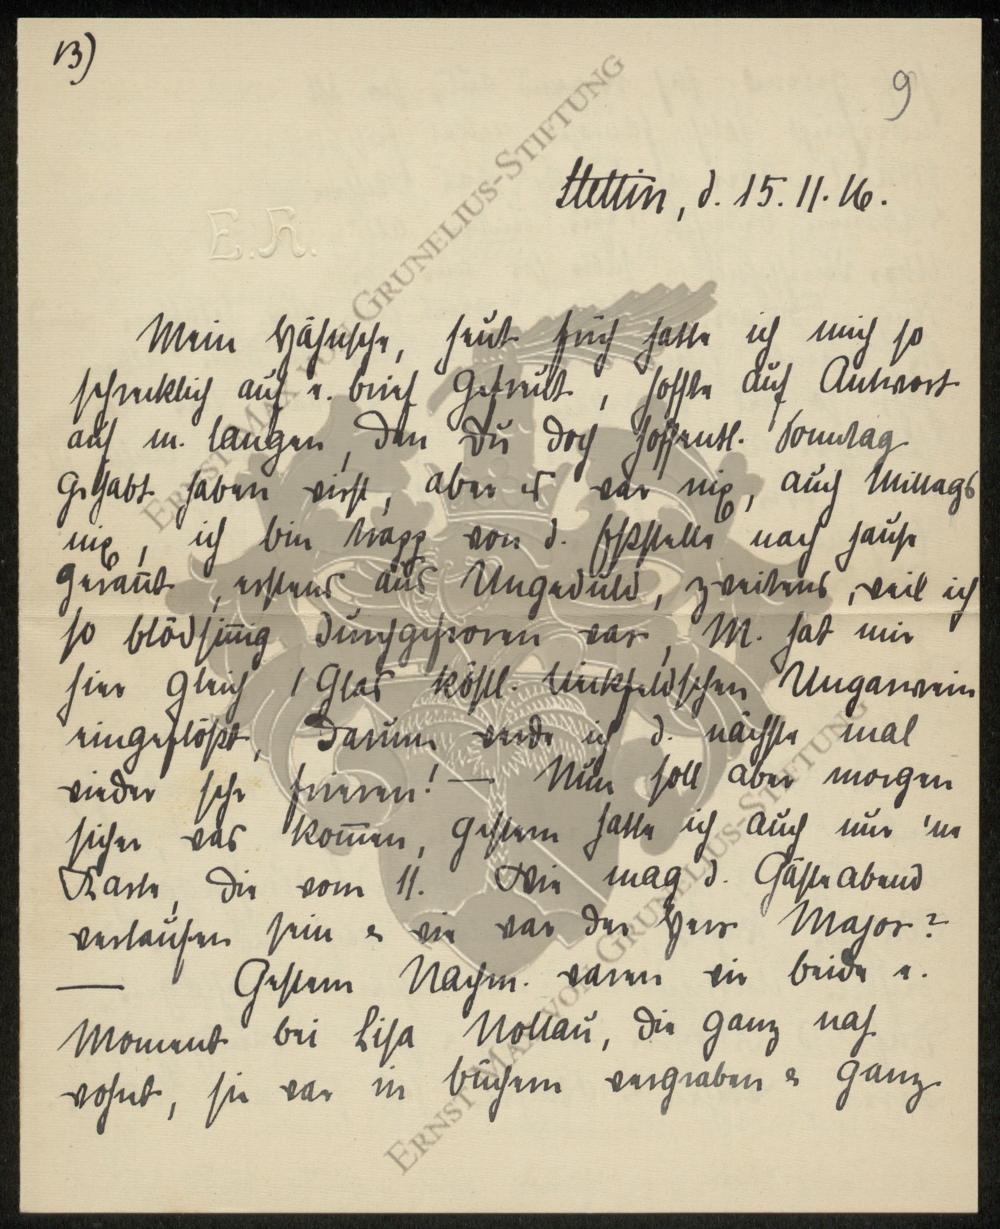 13)
9
Stettin, d. 15.11.16.
E.H.
Mein Hähnsche, heut früh hatte ich mich so
schrecklich auf e. brief gefreut, hoffte auf Antwort
auf m. langen, den Du doch hoffentl. Sonntag
gehabt haben wirst, aber es war nix, auch Mittags
nix, ich bin trapp von d. Eßstelle nach hause
gerannt, erstens aus Ungeduld, zweitens, weil ich
so blödsinnig durchgefroren war, M. hat mir
hier gleich 1 Glas köstl. Ungarwein
eingeflößt, darum werde ich d. nächste mal
wieder sehr frieren! — Nun soll aber morgen
sicher was kommen, gestern hatte ich auch nur 'ne
Karte, die vom 11. Wie mag d. Gästeabend
verlaufen sein & wie war der Herr Major?
— Gestern Nachm. waren wir beide e.
Moment bei Lisa Nollau, die ganz nah
wohnt, sie war in büchern vergraben & ganz
ERNST MAX VON GRUNELIUS-STIFTUNG
ERNST MAX VON GRUNELIUS-STIFTUNG